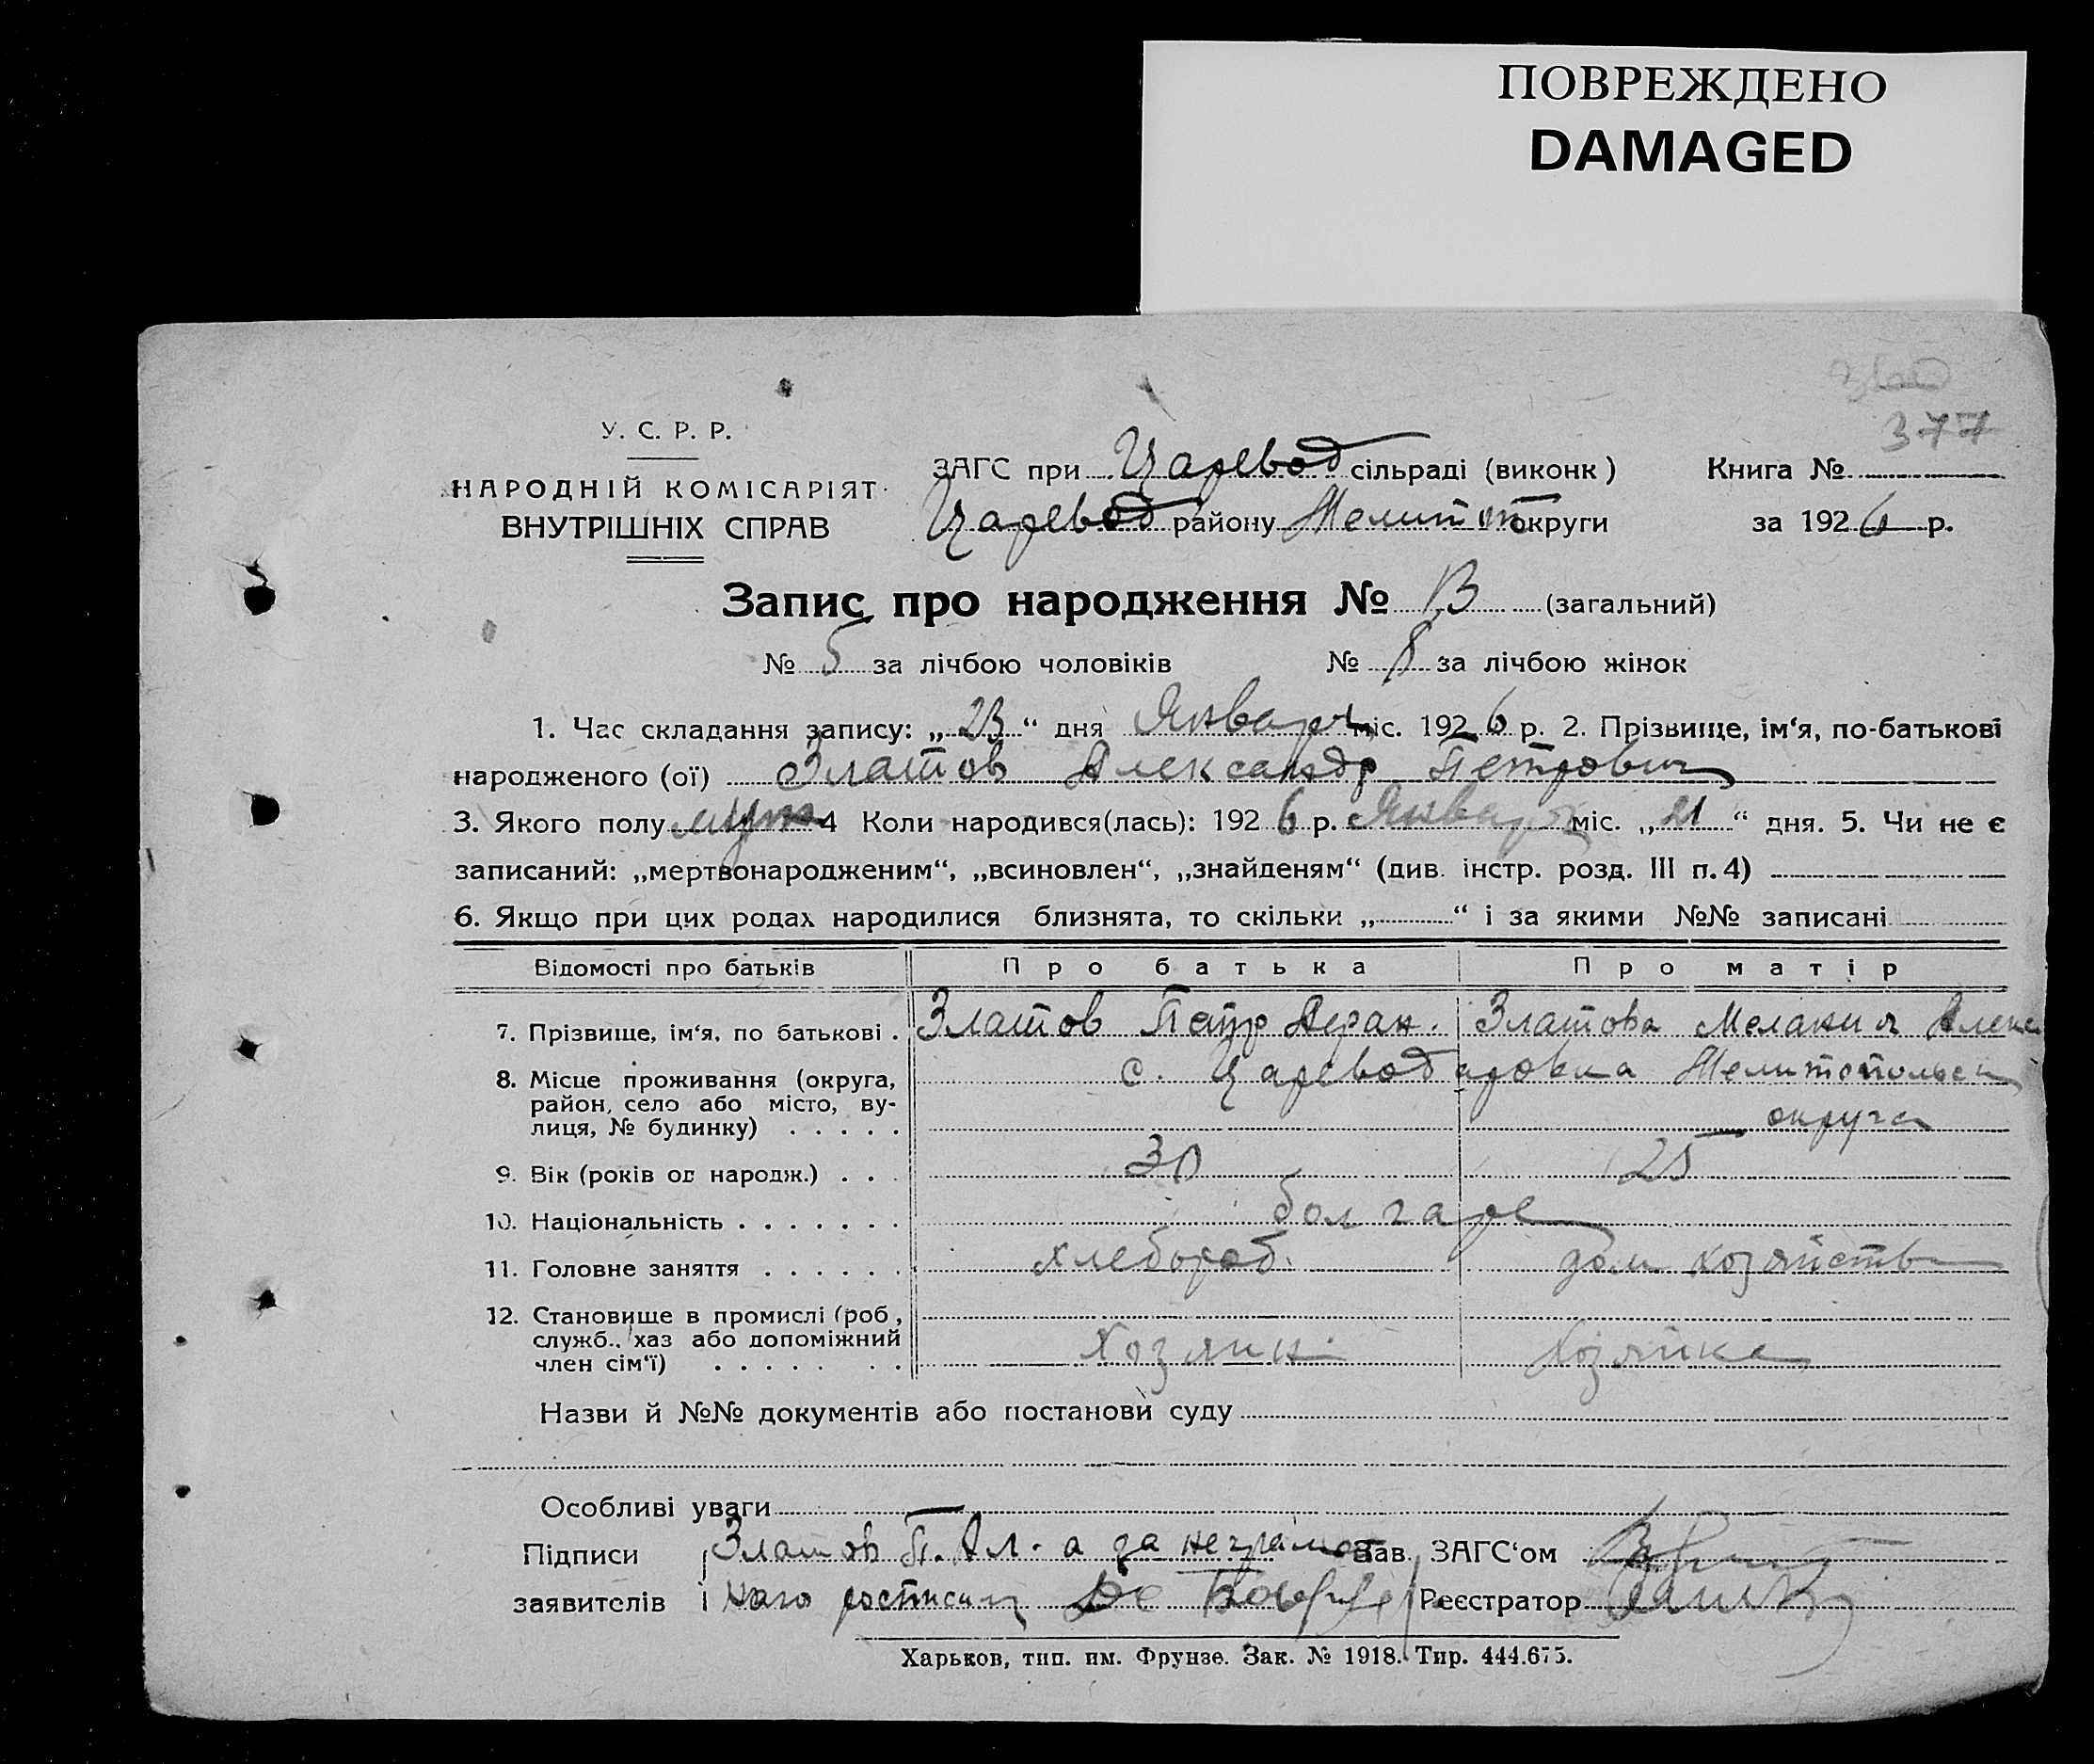 ПОВРЕЖДЕНО
DAMAGED
377
У. С. Р. Р.
НАРОДНІЙ КОМІСАРІЯТ
ВНУТРІШНІХ СПРАВ
ЗАГС при Царевод сільраді (виконк)
Книга №
Царевод району Мелитоп округи
за 1926 р.
Запис про народження № 13 (загальний)
№ 5 за лічбою чоловіків № 8 за лічбою жінок
1. Час складання запису: „23“ дня Января міс. 1926 р. 2. Прізвище, ім‘я, по-батькові
народженого (ої) Златов Александр Петрович
3. Якого полу муж 4 Коли народився(лась): 1926 р. Января міс. „21“ дня. 5. Чи не є
записаний: „мертвонародженим“, „всиновлен“, „знайденям“ (див. інстр. розд. III п. 4)
6. Якщо при цих родах народилися близнята, то скільки „ “ і за якими №№ записані
Відомості про батьків Про батька Про матір
7. Прізвище, ім‘я, по батькові . Златов Петр Златова Мелания Алекс
8. Місце проживання (округа, с. Цареводаровка Мелитопольск
район, село або місто, ву-
лиця, № будинку) . . . . . округа
9. Вік (років од народж.) . . . 30 25
10. Національність . . . . . . . болгаре
11. Головне заняття . . . . . . хлебороб. дом хозяйство
12. Становище в промислі (роб,
служб., хаз або допоміжний
член сім‘ї) . . . . . . . Хозяин Хозяйка
Назви й №№ документів або постанови суду
Особливі уваги
Підписи Златов П. Ал. а за неграмот Зав. ЗАГС‘ом
заявителів і ного росписал Реєстратор
Харьков, тип. им. Фрунзе. Зак. № 1918. Тир. 444.675.